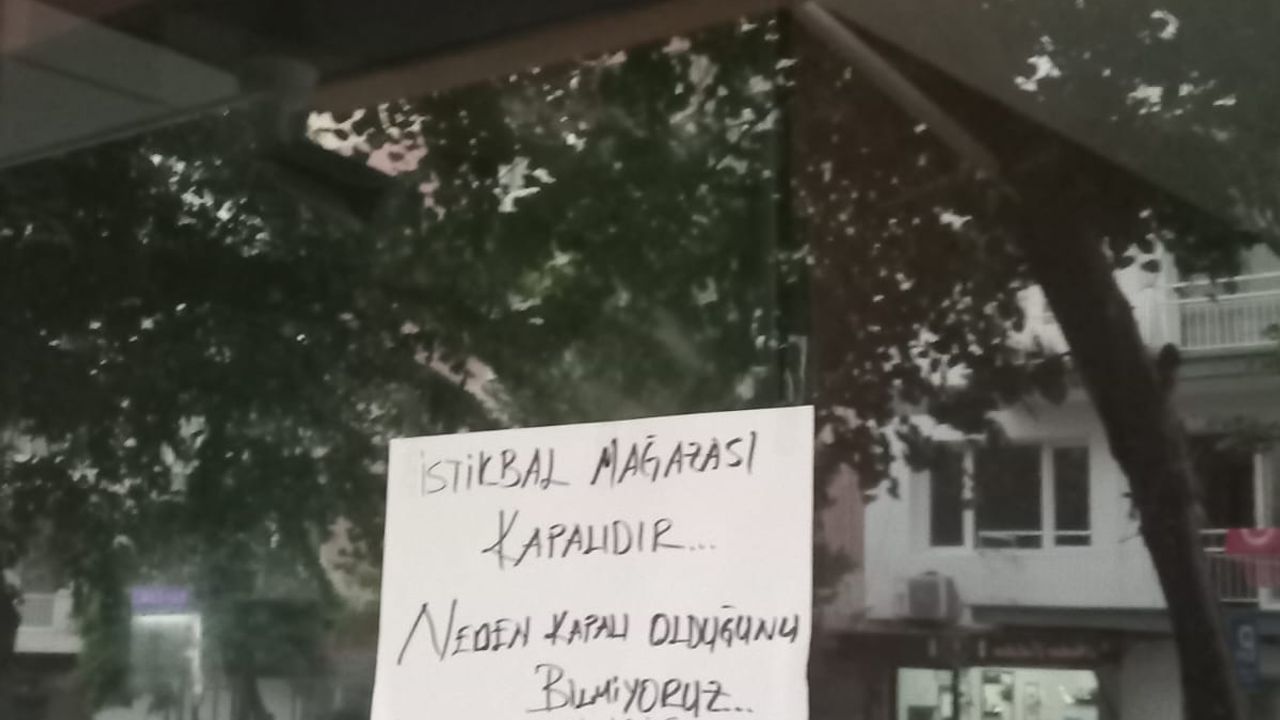 İSTİKBAL MAĞAZASI
KAPALIDIR...
NEDEN KAPALI OLDUĞUNU
BİLMİYORUZ...